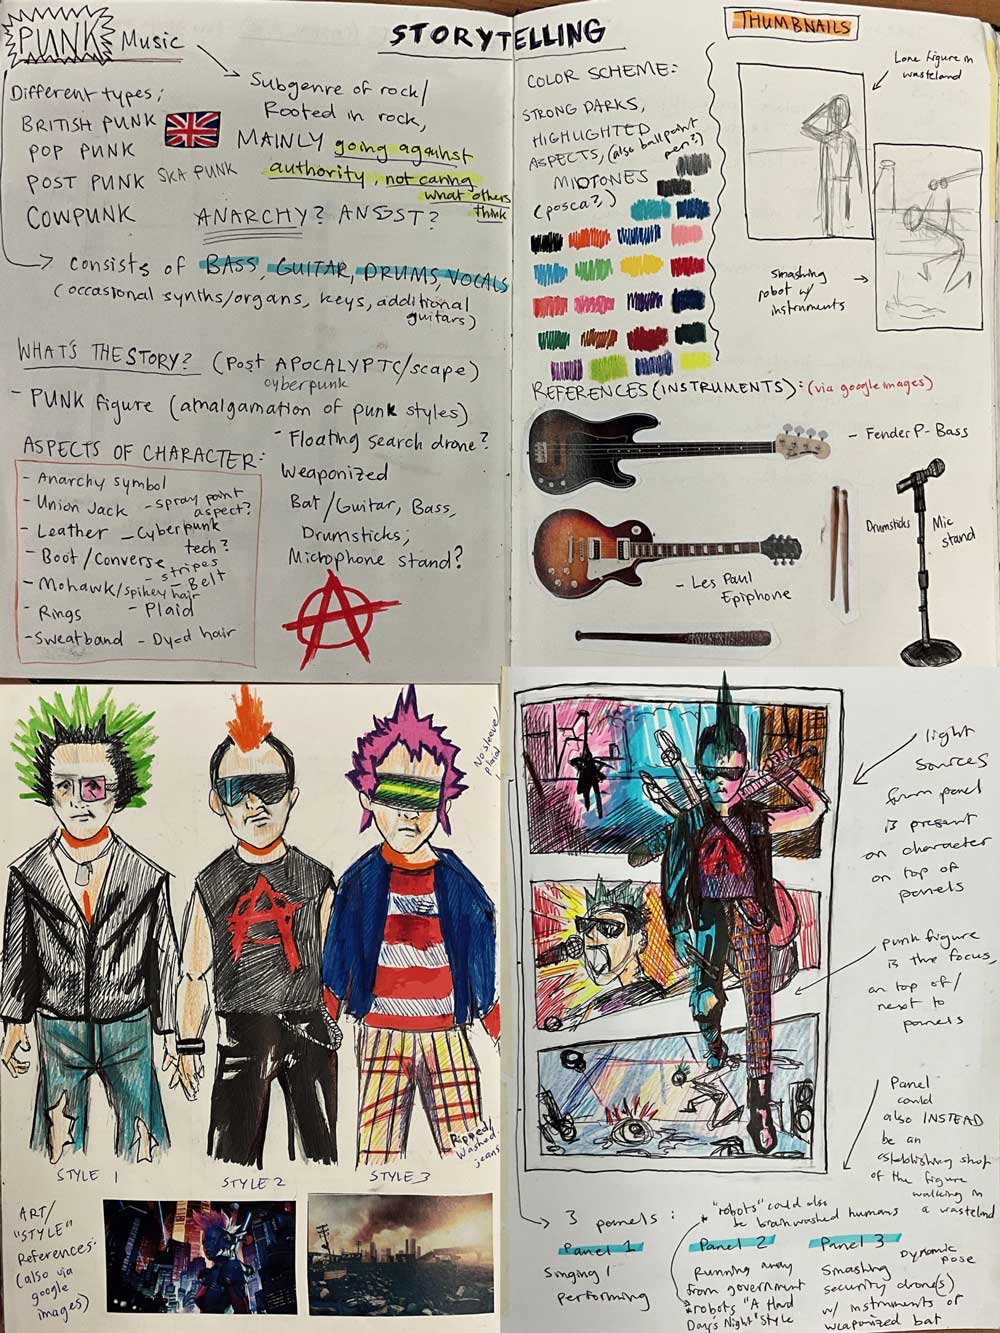 PUNK Music
STORYTELLING
Different types;
BRITISH PUNK
POP PUNK
POST PUNK SKA PUNK
COWPUNK
Subgenre of rock/
Rooted in rock,
MAINLY going against
authority, not caring
what others
think
ANARCHY? ANGST?
consists of BASS, GUITAR, DRUMS, VOCALS
(occasional synths/organs, keys, additional
guitars)
WHAT'S THE STORY? (Post APOCALYPTC/scape)
cyberpunk
- PUNK figure (amalgamation of punk styles)
- Floating search drone?
ASPECTS OF CHARACTER:
- Anarchy symbol
- Union Jack - spray paint
aspect?
- Leather - Cyberpunk
tech?
- Boot/Converse
- stripes
- Mohawk/spikey hair - Belt
- Rings - Plaid
- Sweatband - Dyed hair
Weaponized
Bat/Guitar, Bass,
Drumsticks;
Microphone stand?
COLOR SCHEME:
STRONG DARKS,
HIGHLIGHTED
ASPECTS, (also ballpoint
pen?)
MIDTONES
(posca?)
THUMBNAILS
Lone figure in
wasteland
smashing
robot w/
instruments
REFERENCES (INSTRUMENTS): (via google images)
- Fender P-Bass
- Les Paul
Epiphone
Drumsticks
Mic
stand
No sleeve/
plaid
Ripped/
Washed
jeans
STYLE 1
STYLE 2
STYLE 3
ART/
"STYLE"
References:
(also via
google
images)
light
sources
from panel
is present
on character
on top of
panels
punk figure
is the focus,
on top of/
next to
panels
Panel
could
also INSTEAD
be an
establishing shot
of the figure
walking in
a wasteland
3 panels:
* "robots" could also
be brainwashed humans
Panel 1
Singing/
performing
Panel 2
Running away
from government
*robots "A Hard
Day's Night" style
Panel 3
Dynamic
pose
Smashing
security drone(s)
w/ instruments or
weaponized bat